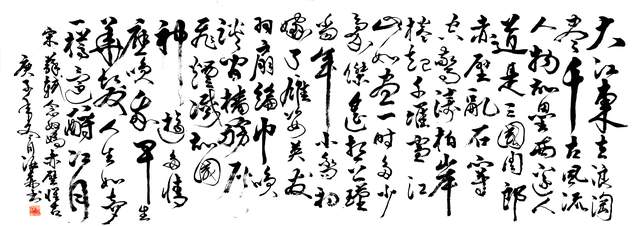 大江東去浪淘
盡千古風流
人物故壘西邊人
道是三國周郎
赤壁亂石穿
空驚濤拍岸
捲起千堆雪江
山如畫一時多少
豪傑遙想公瑾
當年小喬初
嫁了雄姿英發
羽扇綸巾咲
談間檣櫓灰
飛煙滅故國
神遊多情
應咲我早生
華髮人生如夢
一樽還酹江月
宋蘇軾念奴嬌赤壁懷古
庚子年